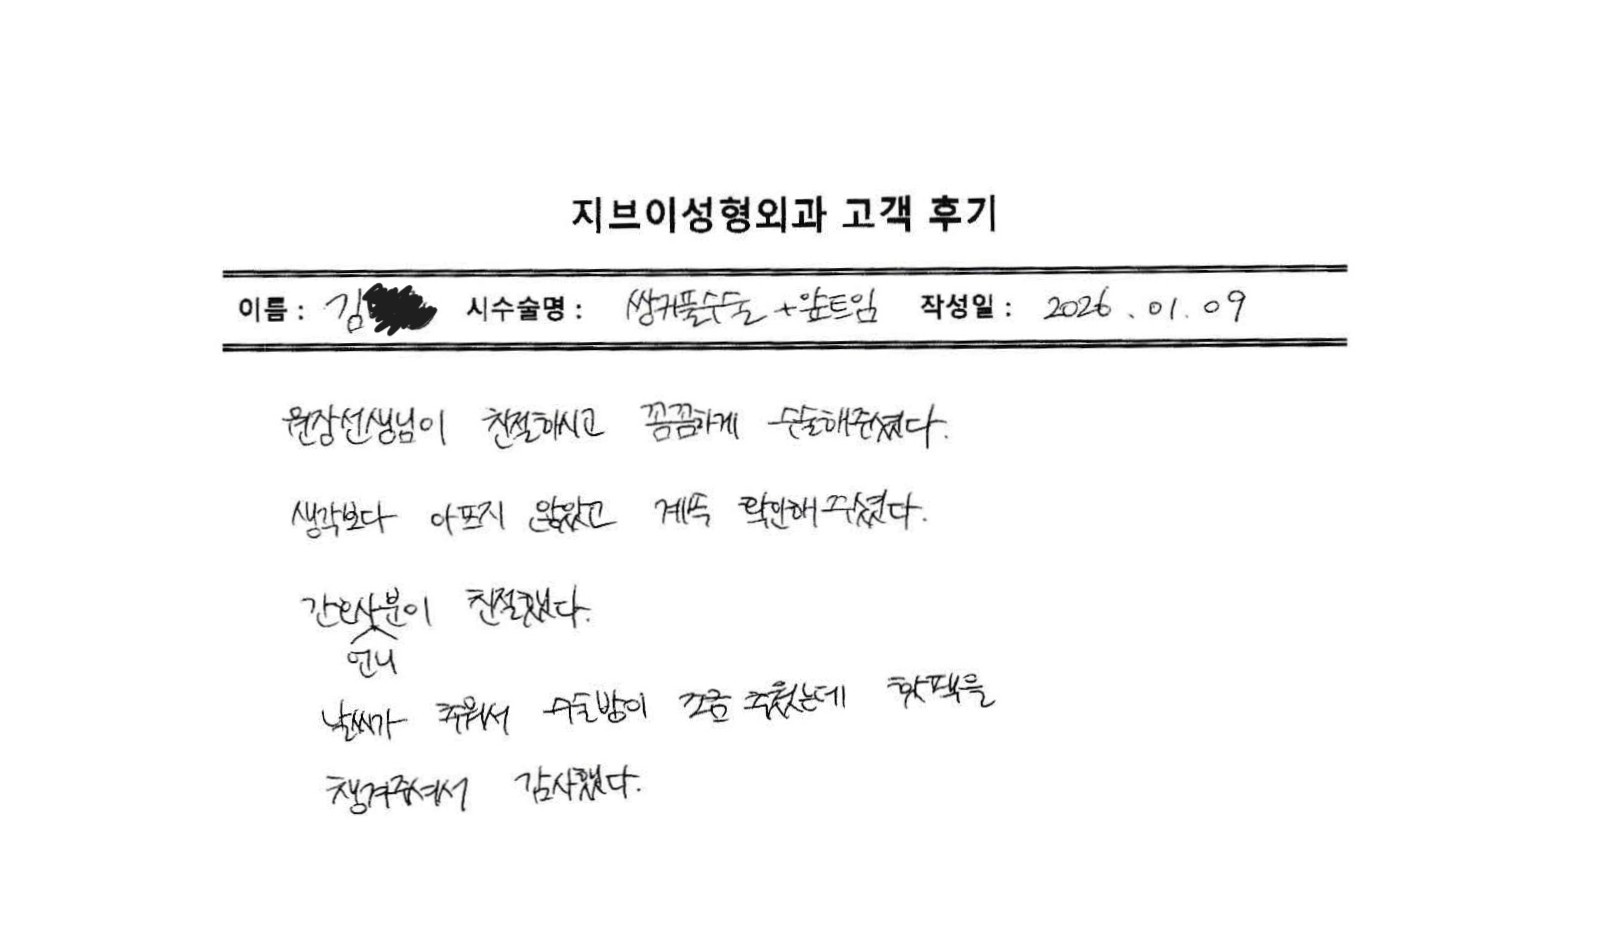 지브이성형외과 고객 후기
이름 : 김 시수술명 : 쌍커풀수술 + 앞트임 작성일 : 2026.01.09
원장선생님이 친절하시고 꼼꼼하게 수술해주셨다.
생각보다 아프지 않았고 계속 확인해주셨다.
간호사분이 친절했다.
언니
날씨가 추워서 수술방이 조금 추웠는데 핫팩을
챙겨주셔서 감사했다.